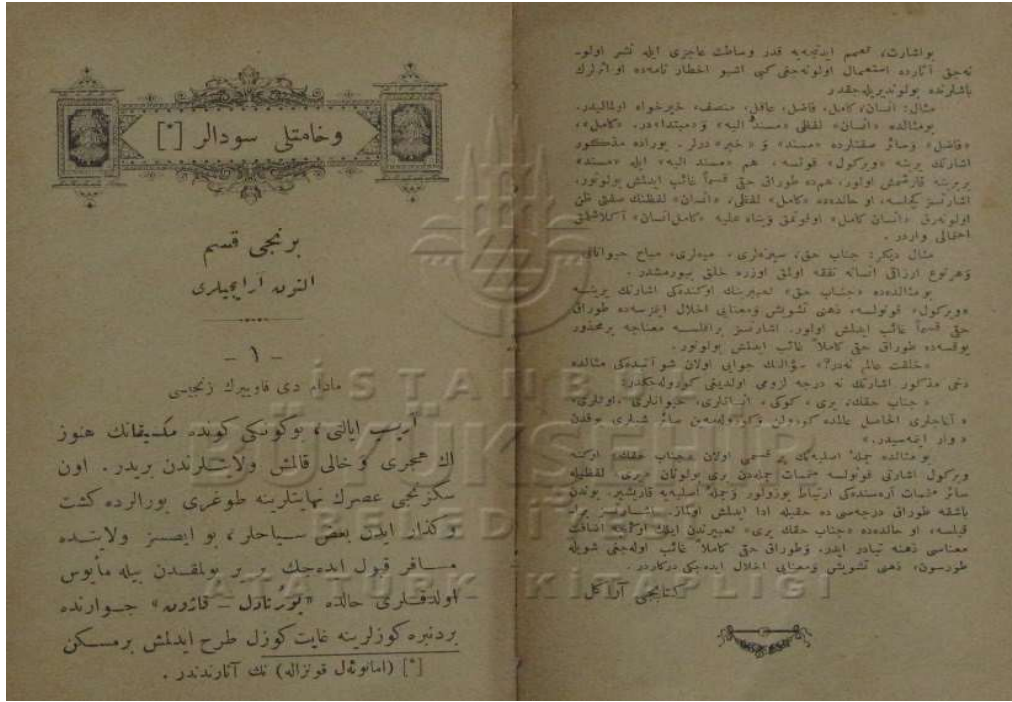 بو اشارت، تعمم ایدنجه‌یه قدر وساطت عاجزی ایله نشر اولو-
نه‌جق آثارده استعمال اولونه‌جغی کبی اشبو اخطار نامه‌ده او اثرلرك
باشلرنده بولوندیریله‌جقدر
مثال: انسان، کامل، فاضل، عاقل، منصف، خیرخواه اولمالیدر.
بومثالده «انسان» لفظی «مسند الیه» و «مبتدا» در. «کامل»،
«فاضل» وسائر صفتلرده «مسند» و «خبر» درلر. بوراده مذکور
اشارتك یرینه «ویرکول» قونسه، هم «مسند الیه» ایله «مسند»
بربرینه قارشمش اولور، هم‌ده طوراق حق قسماً غائب ایدلمش بولونور.
اشارتسز کچیلسه، او حالده‌ده «کامل» لفظی، «انسان» لفظنك صفتی ظن
اولونه‌رق «انسان کامل» اوقونمق وبناء علیه «کامل انسان» آکلاشلمق
احتمالی واردر.
مثال دیکر: جناب حق، سبزه‌لری، میوه‌لری، مباح حیواناتی
وهرنوع ارزاقی انسانه نفقه اولمق اوزره خلق بیورمشدر.
بومثالده‌ده «جناب حق» تعبیرینك اوکنده‌کی اشارتك یرینه
«ویرکول» قونولسه، ذهنی تشویش ومعنایی اخلال ایتمزسه‌ده طوراق
حق قسماً غائب ایدلمش اولور. اشارتسز براقلسه معناجه برمحذور
یوقسه‌ده طوراق حق کاملاً غائب ایدلمش بولونور.
«خلقت عالم نه‌در؟» سؤالنك جوابی اولان شو آتیده‌کی مثالده
دخی مذکور اشارتك نه درجه لزومی اولدیغی کورولەجکدر:
«جناب حقك، یری، کوکی، انسانلری، حیوانلری، اوتلری،
آغاجلری الحاصل عالمده کورولن وکورولمه‌ین سائر شیلری یوقدن
وار ایتمه‌سیدر.»
بو مثالده جملهٔ اصلیه‌نك بر قسمی اولان «جناب حقك» ارکنه
ویرکول اشارتی قونولسه متممات جمله‌دن بری بولونان «یری» لفظیله
سائر متممات آره‌سنده‌کی ارتباط بوزولور وجملهٔ اصلیه‌یه قاریشیر. بوندن
باشقه طوراق درجه‌سی ده حقیله ادا ایدلمش اولماز. اشارتسز براـ
قیلسه، او حالده‌ده «جناب حقك یری» تعبیرندن ایلك اوکجه اضافت
معناسی ذهنه تبادر ایدر. وطوراق حق کاملاً غائب اوله‌جغی شویله
طورسون، ذهنی تشویش ومعنایی اخلال ایده‌جکی درکاردر.
کتابجی آراکل
وخامتلی سودالر [*]
برنجی قسم
التون آرایجیلری
- ۱ -
مادام دی قاویبرك زنجیسی
ایالتی، بوکونکی کونده مکسیقانك هنوز
اك هجری و خالی قالمش ولایتلرندن بریدر. اون
سکزنجی عصرك نهایتلرینه طوغری بورالرده کشت
وکذار ایدن بعض سیاحلر، بو ایصسز ولایتده
مسافر قبول ایده‌جك بر یر بولمقدن بیله مأیوس
اولدقلری حالده جوارنده
بردنبره کوزلرینه غایت کوزل طرح ایدلمش برمسکن
[*] (امانوئل قونزاله) نك آثارندندر.
İSTANBUL
BÜYÜKŞEHİR
BELEDİYESİ
ATATÜRK KİTAPLIĞI